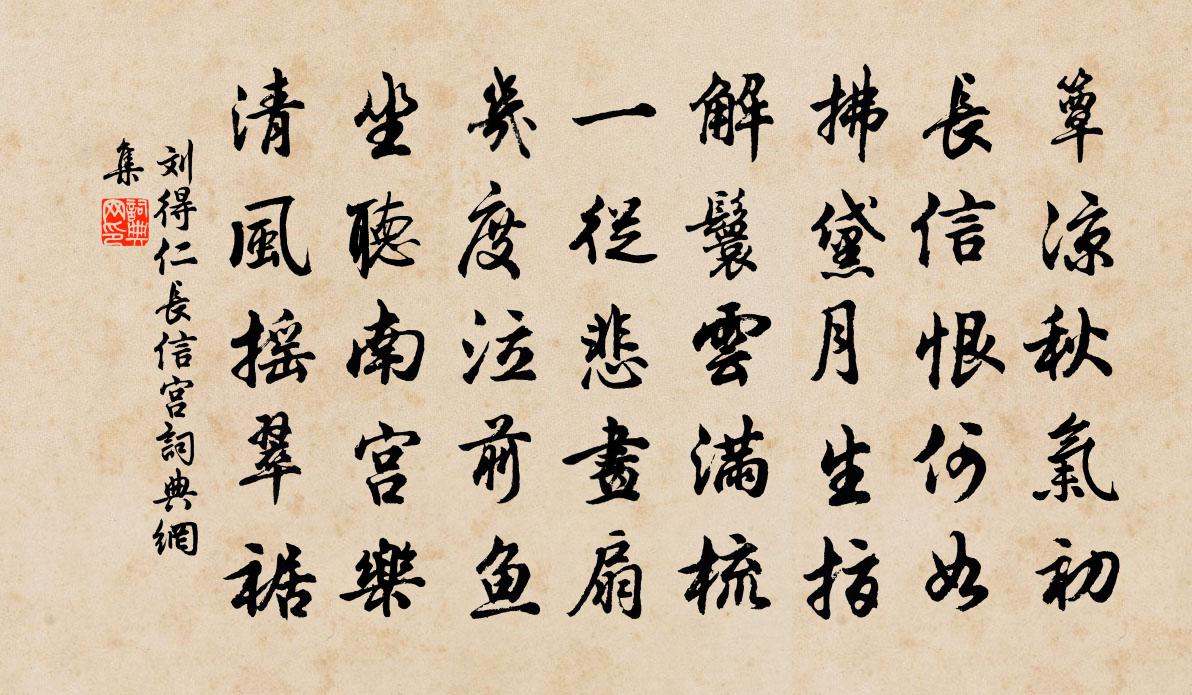 簟涼秋氣初
長信恨何如
拂黛月生指
解鬟雲滿梳
一從悲畫扇
幾度泣前魚
坐聽南宮樂
清風搖翠裾
刘得仁長信宮詞典網
集
詞典网印